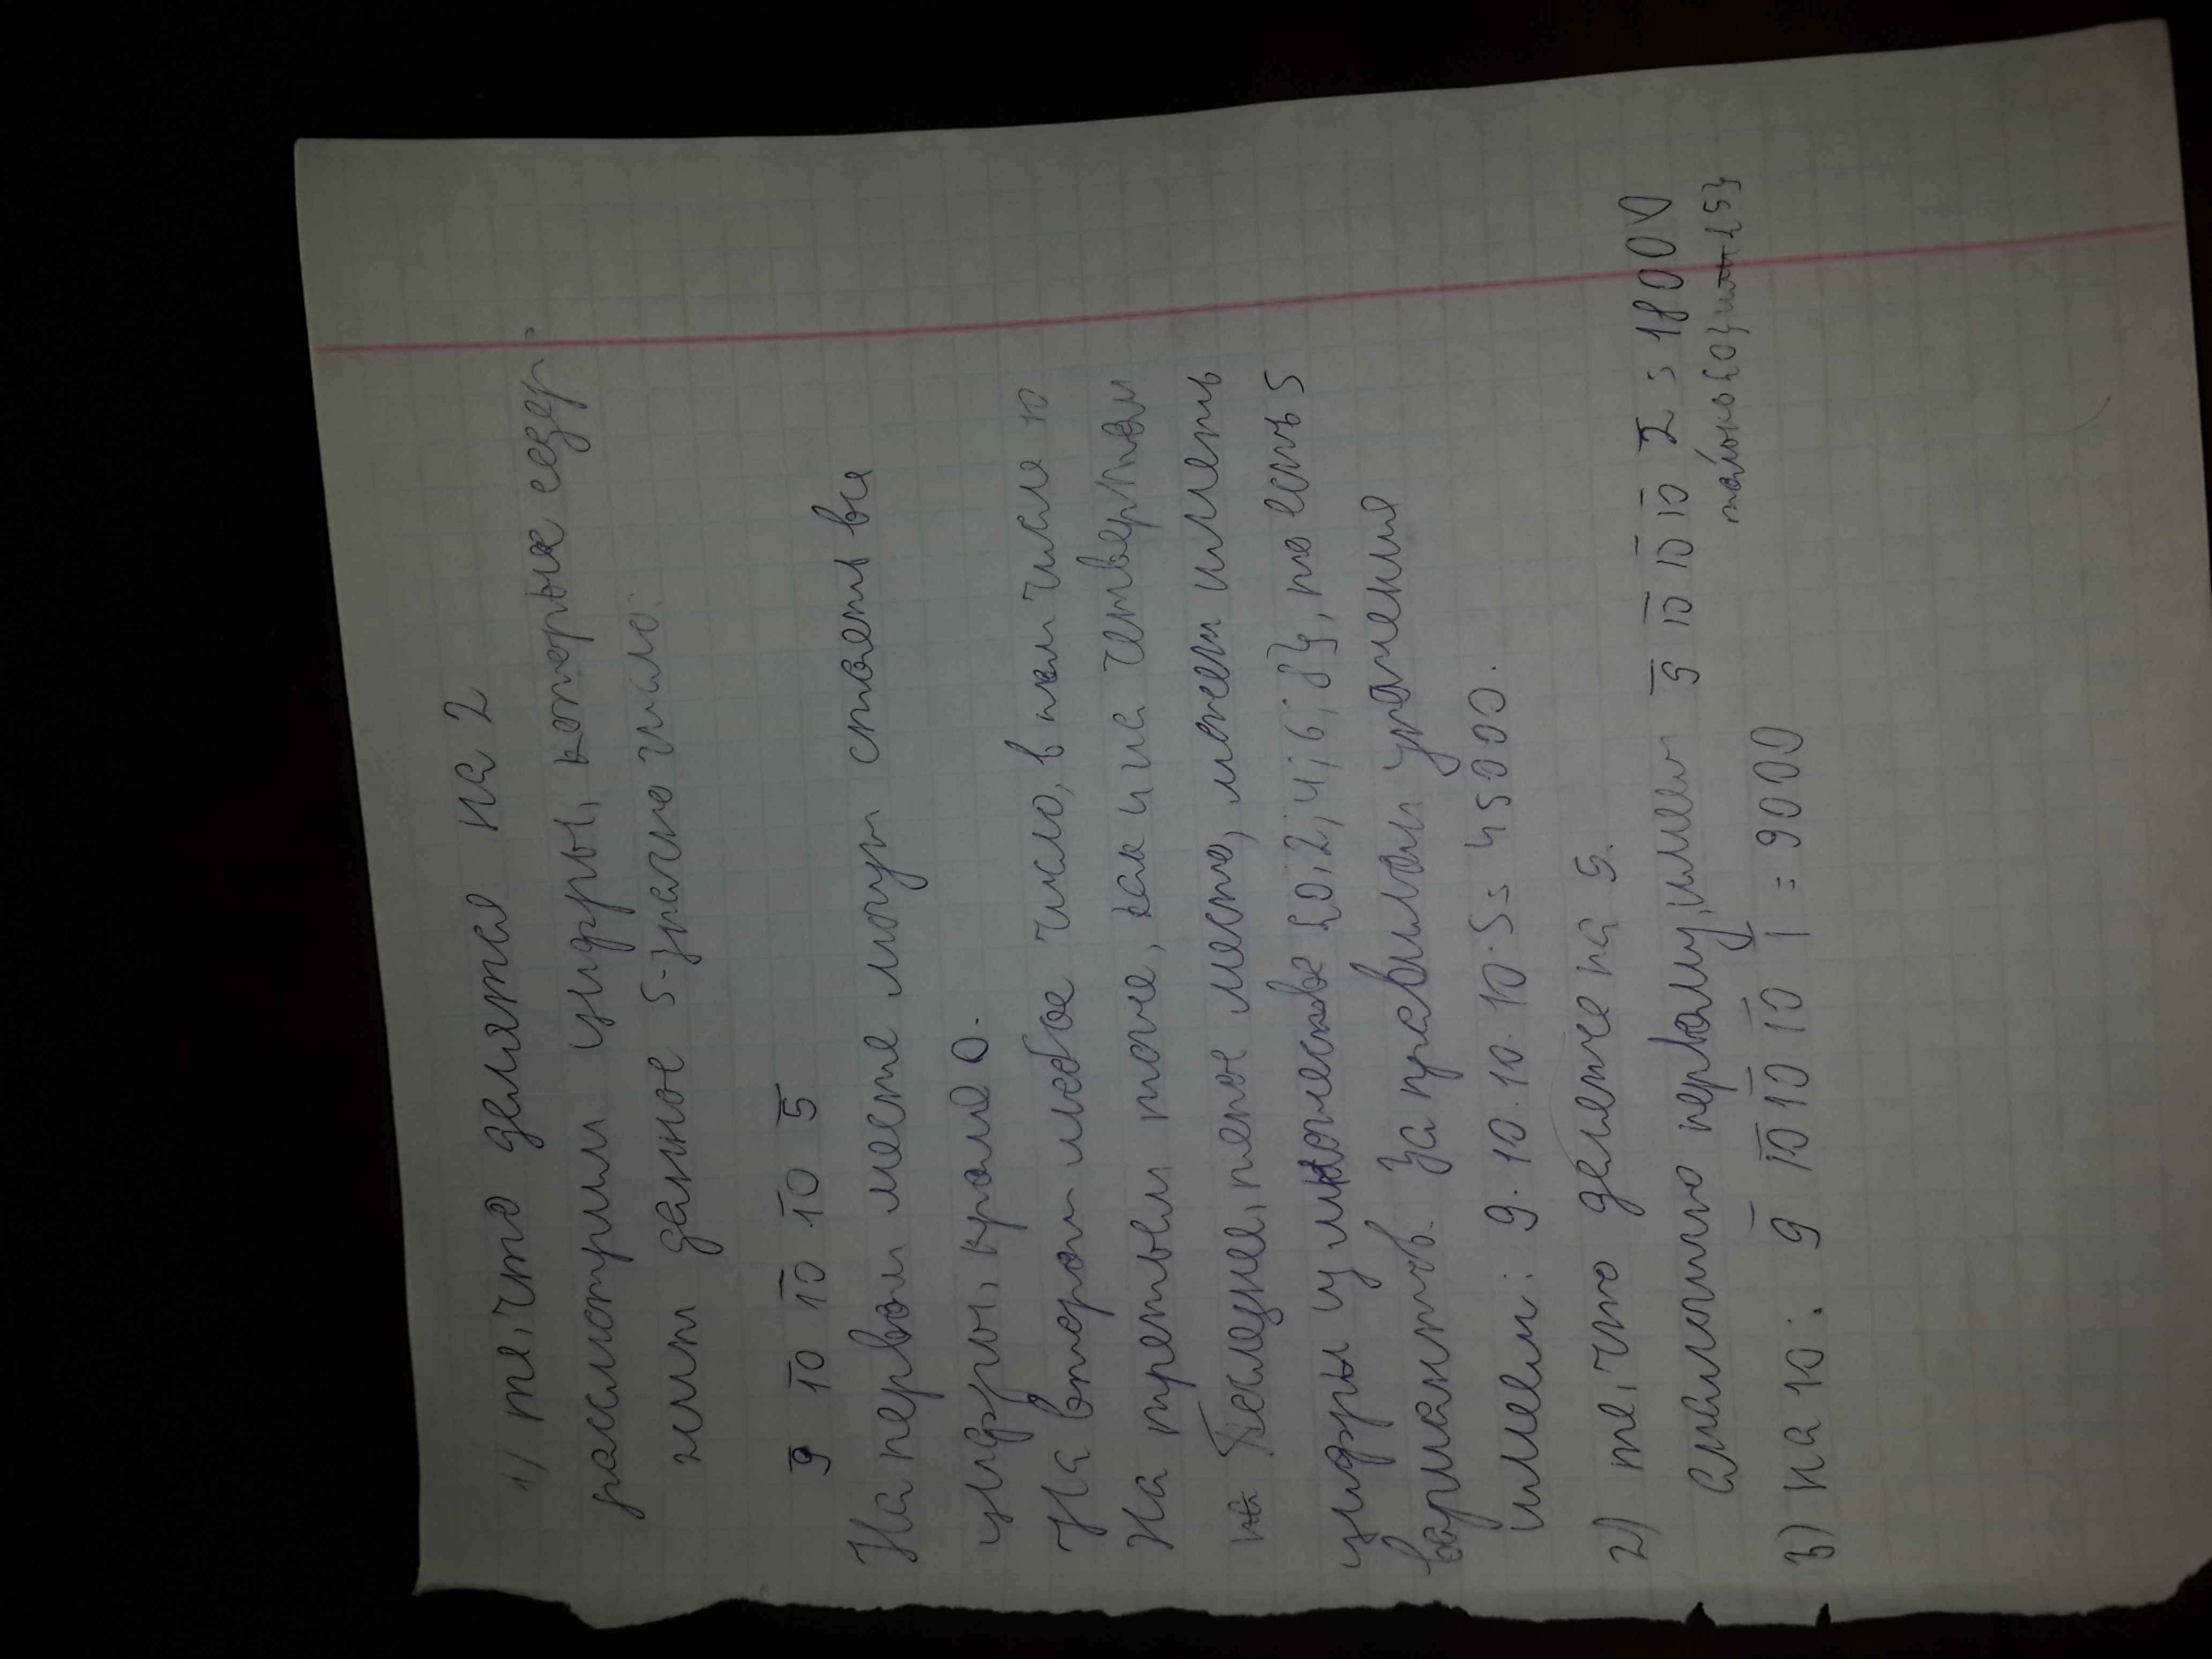 1) те, что делятся на 2
рассмотрим цифры, которые содер
жит данное 5-значное число:
9 10 10 10 5
На первом месте могут стоять все
цифры, кроме 0.
На втором любое число, в том числе и
На третьем тоже, как и на четвертом
Последнее, пятое место, может иметь
цифры из множества {0; 2; 4; 6; 8}, то есть 5
вариантов. За правилом умножения
имеем: 9. 10. 10. 10. 5 = 45000.
2) те, что делятся на 5.
Аналогично первому, имеем 9 10 10 10 2 = 18000
только {0} или {5}
3) на 10: 9 10 10 10 1 = 9000